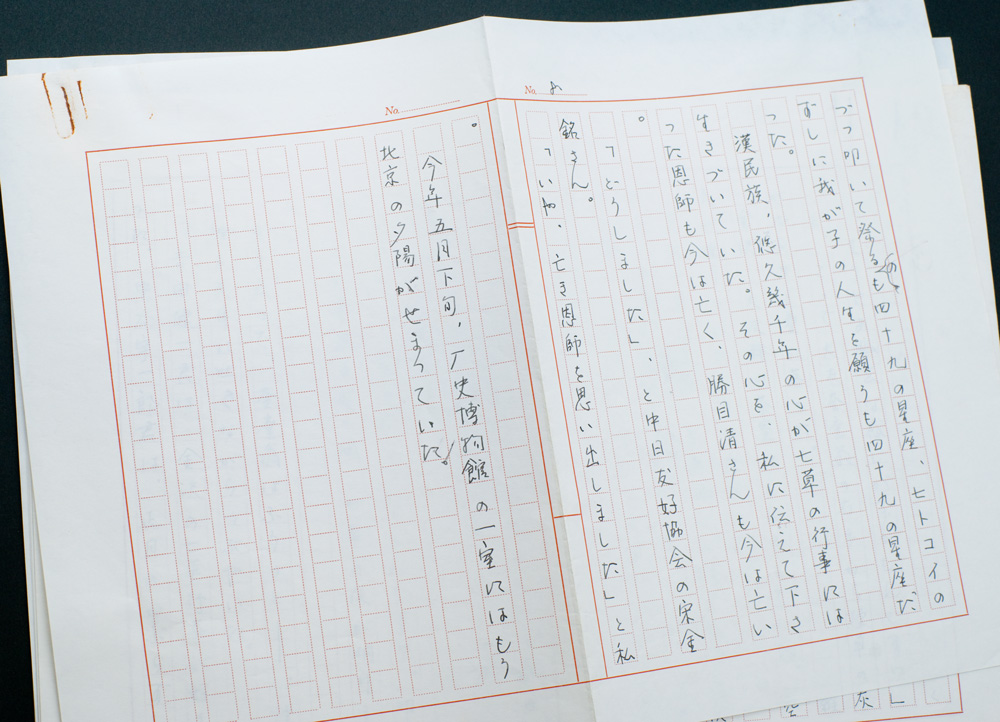 No.
づつ叩いて祭るのも四十九の星座、七トコイの
ずしに我が子の人生を願うも四十九の星座だ
った。
漢民族、悠久幾千年の心が七草の行事には
生きづいていた。その心を、私に伝えて下さ
った恩師も今は亡く、勝目清さんも今は亡い
。
「どうしました」、と中日友好協会の宋金
銘さん。
「いや、亡き恩師を思い出しました」と私
No.
。
今年五月下旬、厂史博物館の一室にはもう
北京の夕陽がせまっていた。
」
灰